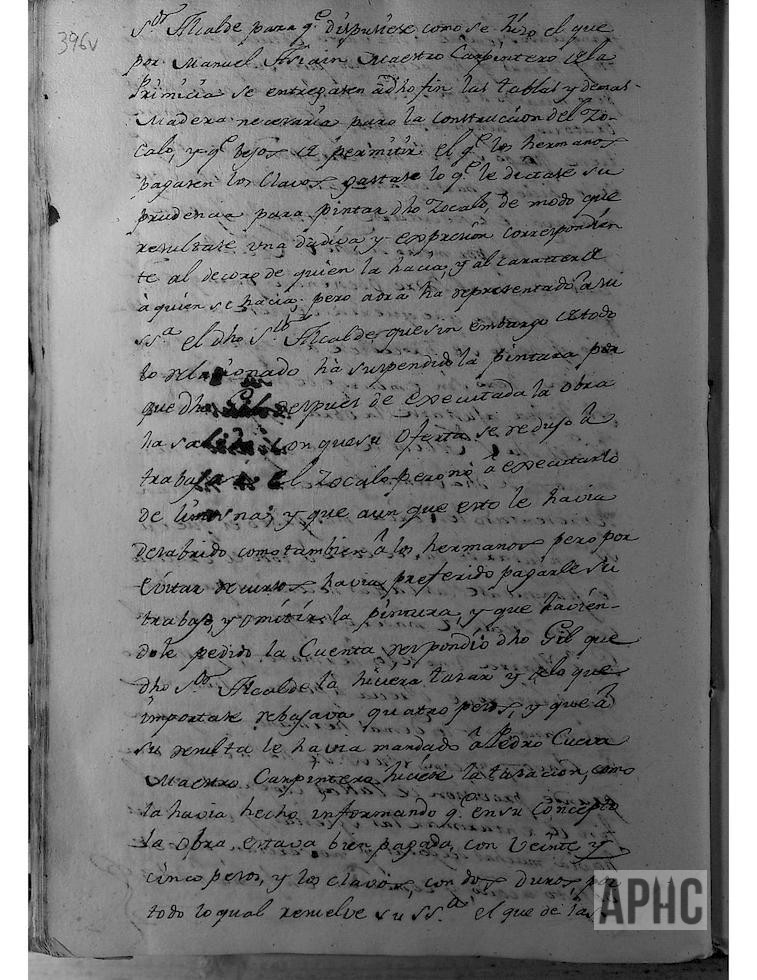 396v
S.or Alcalde para q.e dispusiese, como se hizo el que
por Manuel Asiain Maestro Carpintero de la
Primicia se entregasen a dho fin las tablas y demas
Madera necesaria para la construccion del Zo-
calo, y q.e lejos de permitir el q.e los hermanos
pagasen los Clavos, gastase lo q.e le dictase su
prudencia para pintar dho Zocalo, de modo que
resultase una dadiva, y expresion correspondien
te al decoro de quien la hacia, y al caracter de
à quien se hacia; pero aora ha representado à su
SS.a el dho S.or Alcalde, que sin embargo de todo
lo relacionado hà suspendido la pintura por
que dho Gil despues de executada la obra
ha salido con que su oferta se redujo à
trabajar el Zocalo pero no à executarlo
de limosna, y que aun que esto le havia
desabrido como tambien à los hermanos pero por
evitar recursos havia preferido pagarle su
trabajo, y omitir la pintura, y que havien-
dole pedido la Cuenta respondió dho Gil que
dho S.or Alcalde la hiciera tasar y de lo que
importase rebajava quatro pesos, y que à
su resulta le havia mandado à Pedro Cueva
Maestro Carpintero hiciese la tasacion, como
la havia hecho informando q.e en su Concepto
la obra estava bien pagada, con Veinte y
cinco pesos, y los clavos, con dos duros, por
todo lo qual resuelve su SS.a el que de las
APHC